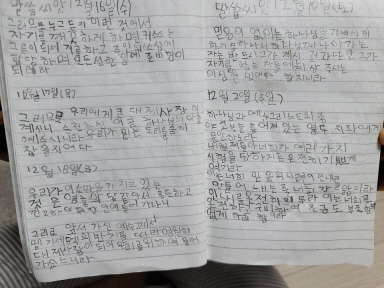 말씀씨앗 12월 16일(수)
그러므로 누구든지 이런 것에서
자기를 깨끗하게 하면 귀히 쓰는
그릇이 되어 거룩하고 주인의 쓰임에
합당하며 모든 선한 일에 준비함이
되리라
12월 17일(목)
그러므로 우리에게 큰 대제사장이
계시니 승천하신 이 곧 하나님의 아들
예수시라 우리가 믿는 도리를 굳게
잡을지어다
12월 18일(금)
우리가 이 소망을 가지고 있는
것은 영혼의 닻 같아서 튼튼하고
견고하여 휘장 안에 들어 가나니
그리로 앞서 가신 예수께서
멜기세덱의 반차를 따라 영원히
대제사장이 되어 우리를 위하여 들어
가셨느니라
말씀씨앗 12월 19일(토)
믿음이 없이는 하나님을 기쁘시게
하지 못하나니 하나님께 나아가는
자는 반드시 그가 계신 것과 또한 그가
자기를 찾는 자들에게 상 주시는
이심을 믿어야 할지니라
12월 20일(주일)
하나님과 주 예수 그리스도의 종
야고보는 흩어져 있는 열두 지파에게
내 형제들아 너희가 여러 가지
시험을 당하거든 온전히 기쁘게
여기라
이는 너희 믿음의 시련이 인내를
만들어 내는 줄 너희가 앎이라
인내를 온전히 이루라 이는 너희로
온전하고 구비하여 조금도 부족함이
없게 하려 함이라